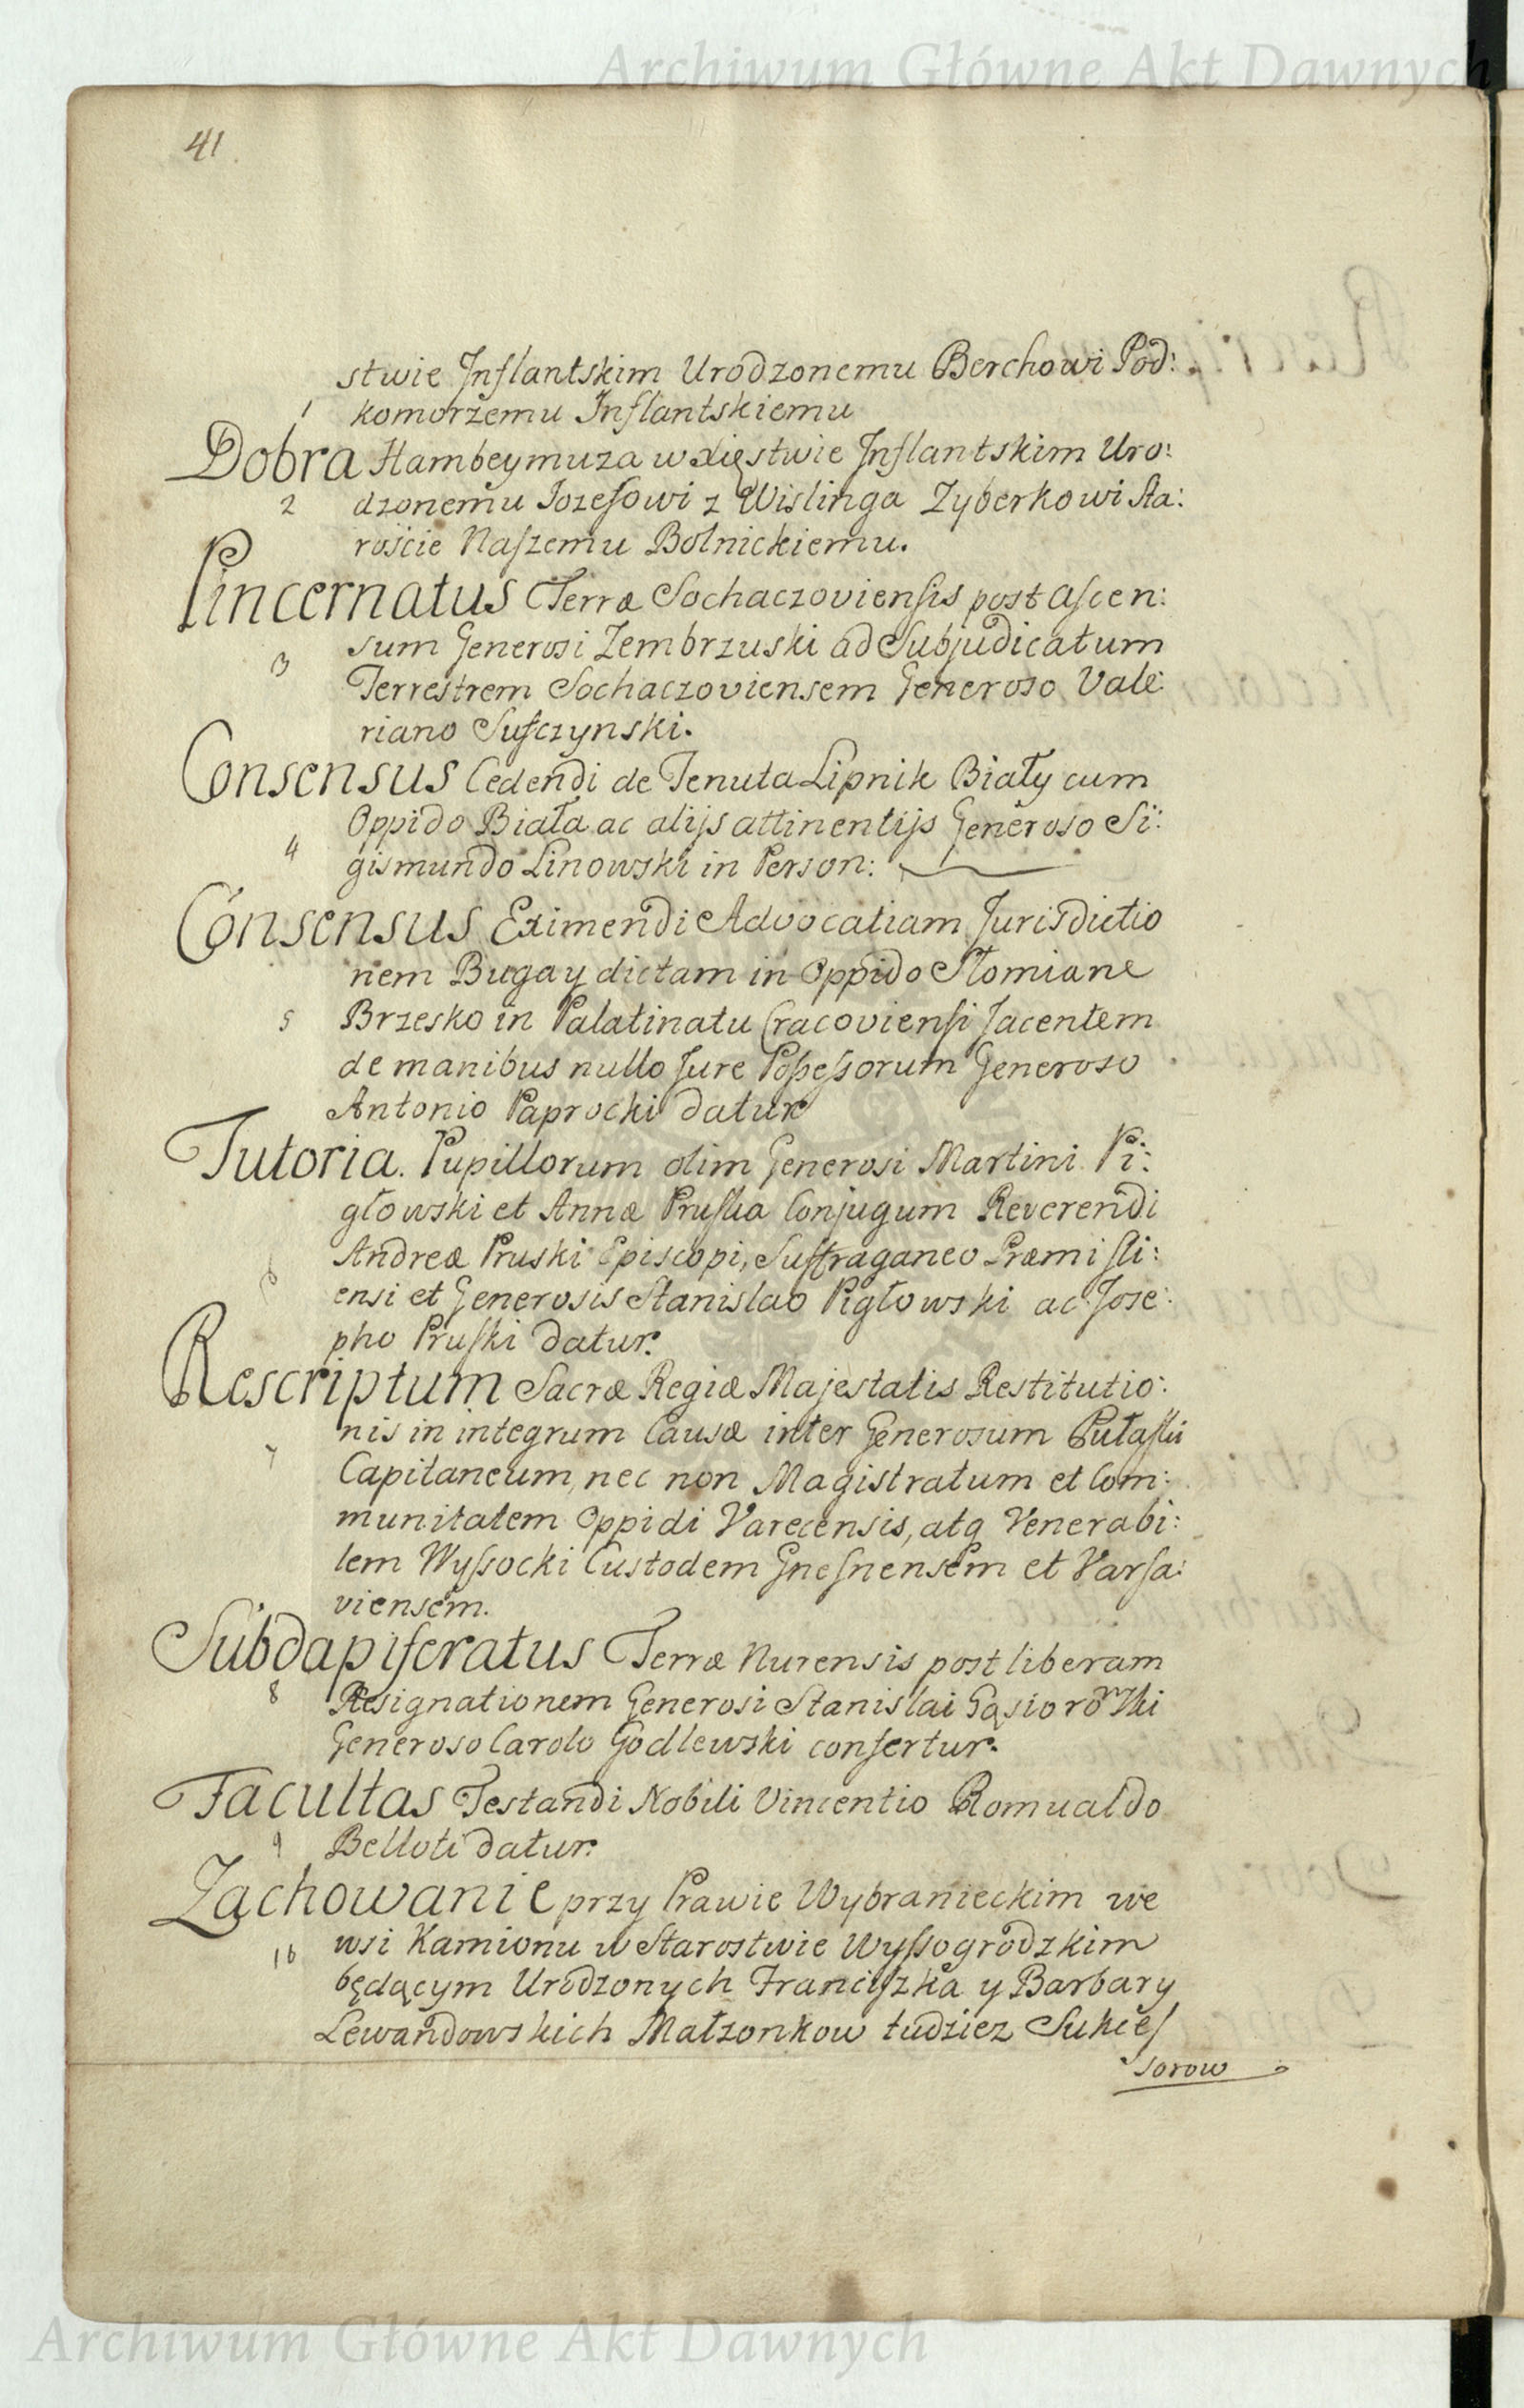 Archiwum Główne Akt Dawnych
41.
stwie Inflantskim Urodzonemu Berchowi Pod:
1 komorzemu Inflantskiemu
Dobra Hambeymuza w Xięstwie Inflantskim Uro:
2 dzonemu Jozefowi z Wislinga Zyberkowi Sta:
roście Naszemu Bolnickiemu.
Pincernatus Terræ Sochaczoviensis post ascen:
sum Generosi Zembrzuski ad Subjudicatum
3 Terrestrem Sochaczoviensem Generoso Vale:
riano Sufczynski.
Consensus Cedendi de Tenuta Lipnik Biały cum
Oppido Biała ac alijs attinentijs Generoso Si:
4 gismundo Linowski in Person:
Consensus Eximendi Advocatiam Jurisdictio
nem Bugay dictam in Oppido Słomiane
5 Brzesko in Palatinatu Cracoviensi Jacentem
de manibus nullo Jure Possessorum Generoso
Antonio Paprocki datur
Tutoria. Pupillorum olim Generosi Martini Pi:
głowski et Annæ Pruska Conjugum Reverendi
6 Andreæ Pruski Episcopi, Suffraganeo Præmisli:
ensi et Generosis Stanislao Pigłowski ac Jose:
pho Pruski datur.
Rescriptum Sacræ Regiæ Majestatis Restitutio:
7 nis in integrum Causæ inter Generosum Pułaski
Capitaneum, nec non Magistratum et Com:
munitatem Oppidi Varecensis, atq Venerabi:
lem Wyssocki Custodem Gnesnensem et Varsa:
viensem.
Subdapiferatus Terræ Nurensis post liberam
8 Resignationem Generosi Stanislai Gąsiorowski
Generoso Carolo Godlewski confertur.
Facultas Testandi Nobili Vincentio Romualdo
9 Belloti datur.
Zachowanie przy Prawie Wybranieckim we
10 wsi Kamionu w Starostwie Wyssogrodzkim
będącym Urodzonych Franciszka y Barbary
Lewandowskich Małzonkow tudziez Sukces
sorow
Archiwum Główne Akt Dawnych